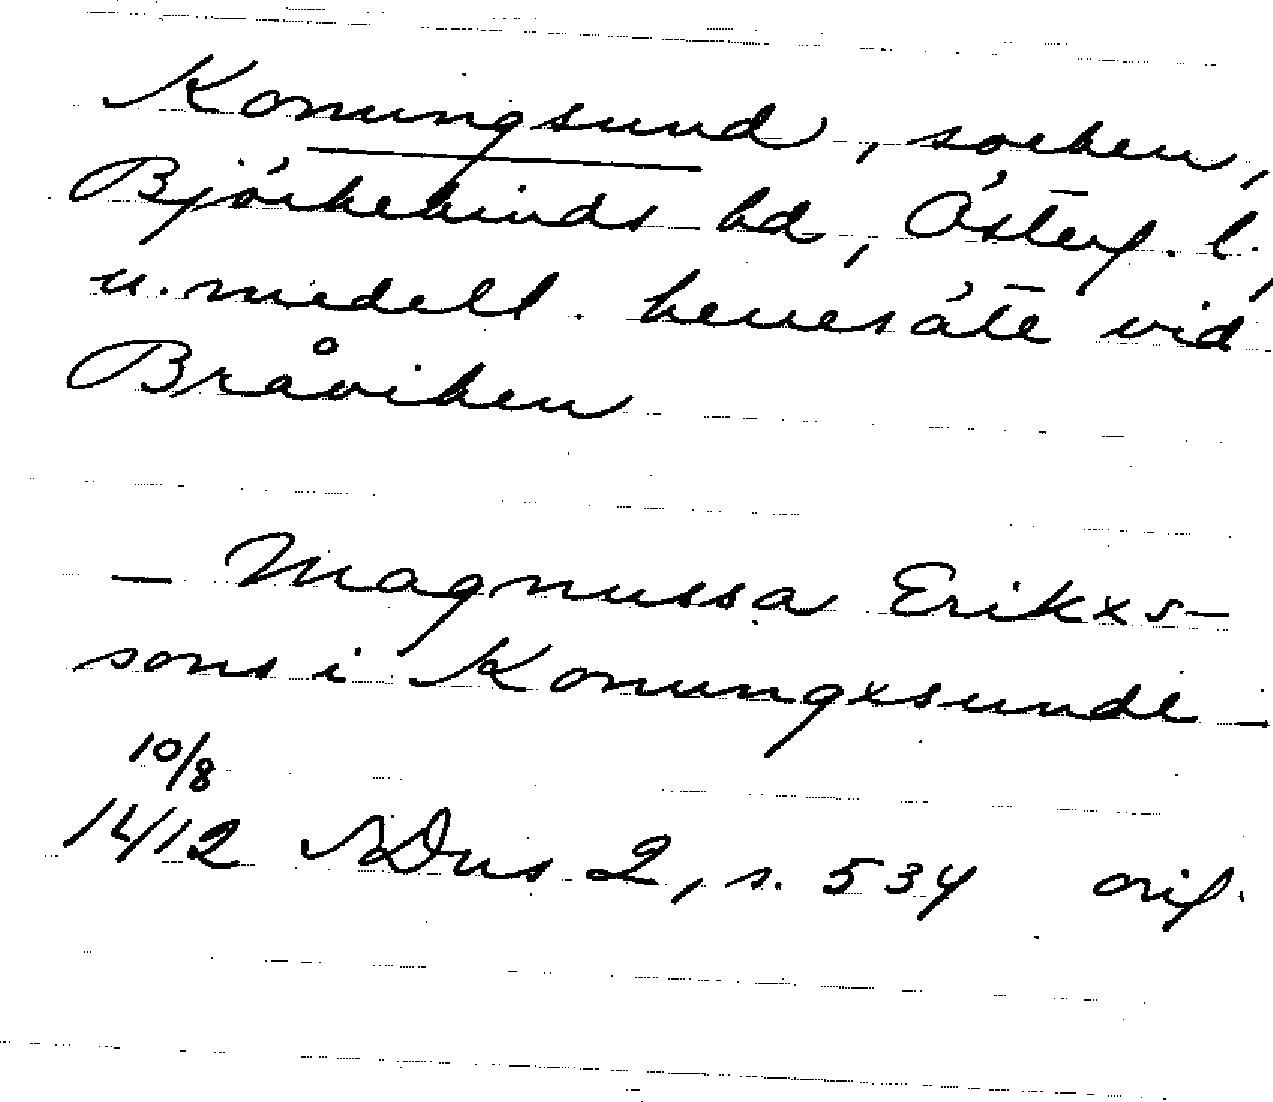 Konungsund, socken,
Björkekinds hd, Österg. l.,
u. medelt. herresäte vid
Bråviken
– Magnussa Erikxs-
sons i Konungxsunde –
10/8
1412 SDns 2, s. 534 orig.